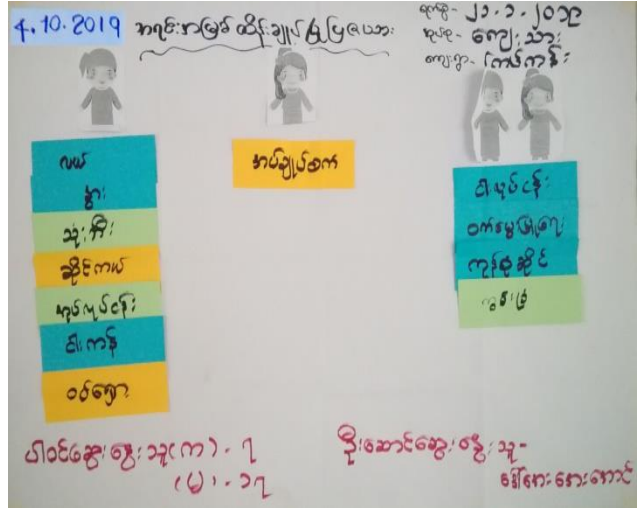 4.10.2019
အရင်းအမြစ်ထိန်းချုပ်မှုပြဇယား
ရက်စွဲ - ၂၁.၁.၂၀၁၉
အုပ်စု - ကျေးသား
ကျေးရွာ - ကြယ်ကန်း
လယ်
နွား
သုံးဘီး
ဆိုင်ကယ်
အုပ်လုပ်ငန်း
ငါးကန်
ဝင်ရော
အပ်ချုပ်စက်
ငါးလုပ်ငန်း
ဝက်မွေးမြူရေး
ကုန်စုံဆိုင်
ကွမ်းခြံ
ပါဝင်ဆွေးနွေးသူ (က) - ၇
(မ) - ၁၇
ဦးဆောင်ဆွေးနွေးသူ -
ဒေါ်အေးအေးအောင်